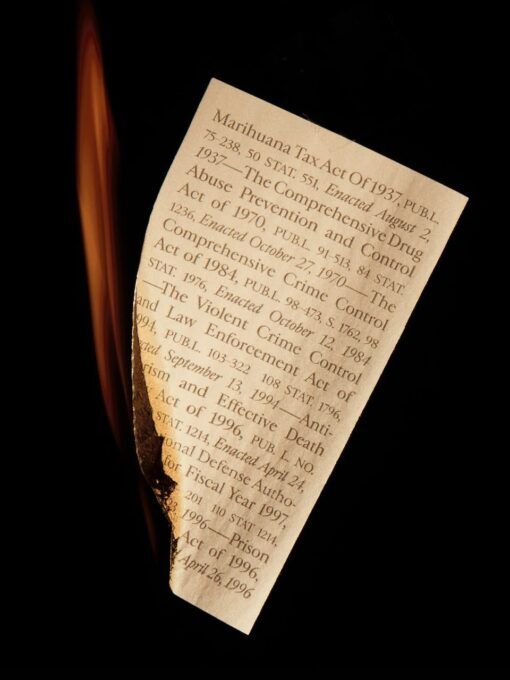 Marihuana Tax Act Of 1937, PUB.L.
75-238, 50 STAT. 551, Enacted August 2,
1937—The Comprehensive Drug
Abuse Prevention and Control
Act of 1970, PUB.L. 91-513, 84 STAT.
1236, Enacted October 27, 1970—The
Comprehensive Crime Control
Act of 1984, PUB.L. 98-473, S. 1762, 98
STAT. 1976, Enacted October 12, 1984
—The Violent Crime Control
and Law Enforcement Act of
994, PUB.L. 103-322 108 STAT. 1796,
cted September 13, 1994—Anti-
rism and Effective Death
Act of 1996, PUB. L. NO.
STAT. 1214, Enacted April 24,
ional Defense Autho-
for Fiscal Year 1997,
201 110 STAT. 1214,
23, 1996—Prison
Act of 1996,
April 26, 1996